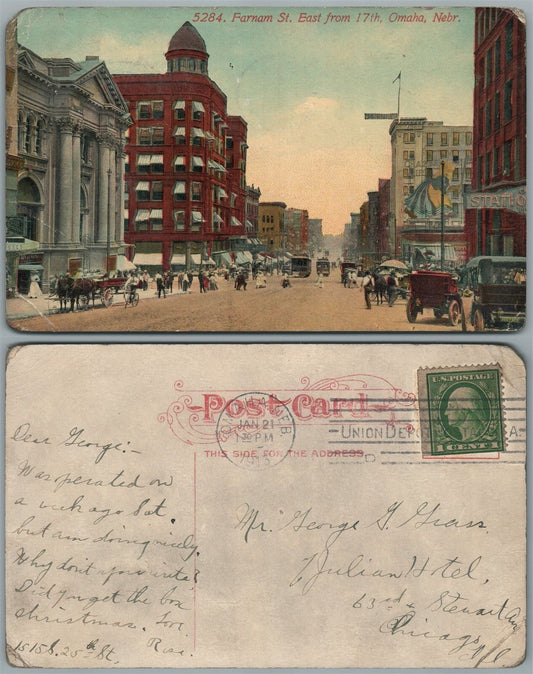 5284. Farnam St. East from 17th, Omaha, Nebr.
STATIO
Post Card
THIS SIDE FOR THE ADDRESS
OMAHA, NEB.
JAN 21
1 30 PM
UNION DEPOT
U.S. POSTAGE
1 CENT 1
Dear George:-
Was operated on
a week ago Sat.
but am doing nicely.
Why don't you write?
Did you get the box
Christmas. Love
Rose.
1515 S. 25th St,
Mr. George G. Grass.
Julian Hotel,
63rd & Stewart Ave
Chicago
Ill